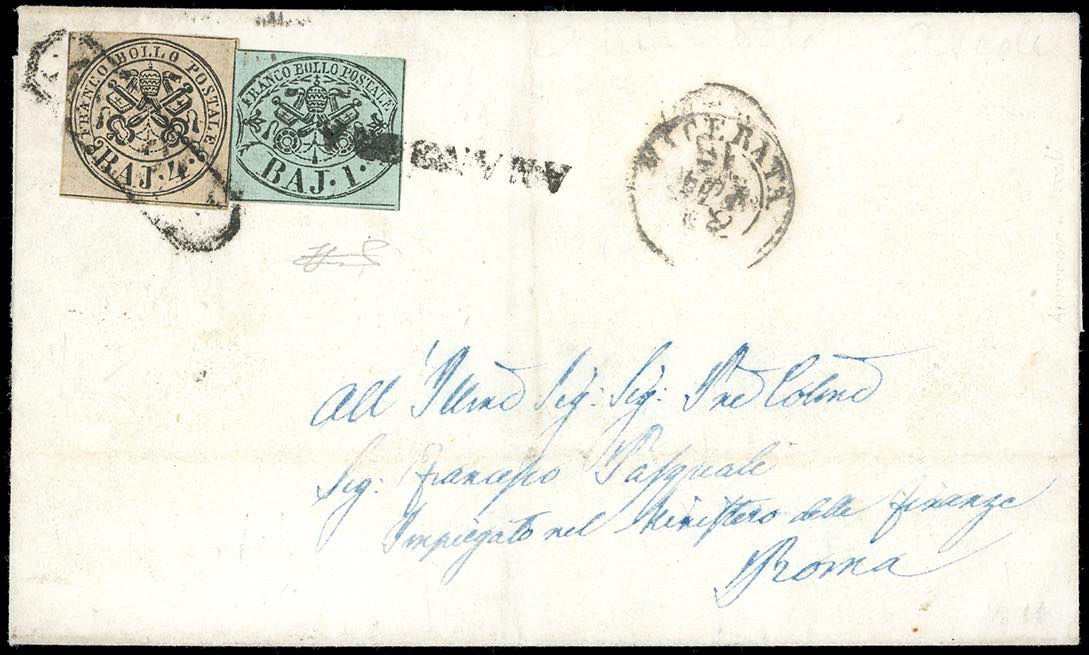 FRANCO BOLLO POSTALE
BAJ. 4.
FRANCO BOLLO POSTALE
BAJ. 1.
MACERATA
All' Illmo Sig: Sig: Pne Colmo
Sig: Francesco Pasquale
Impiegato nel Ministero delle Finanze
Roma